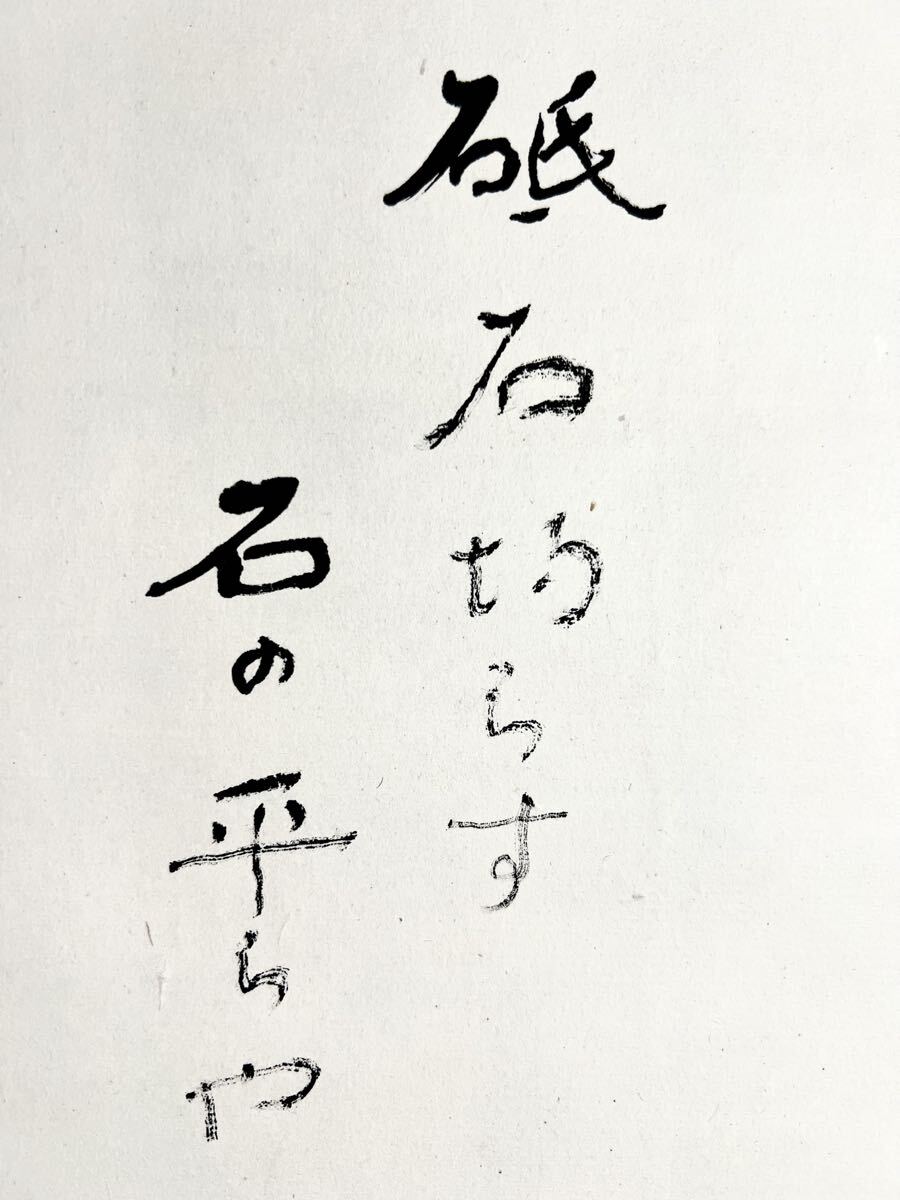 砥石均らす
石の平らや